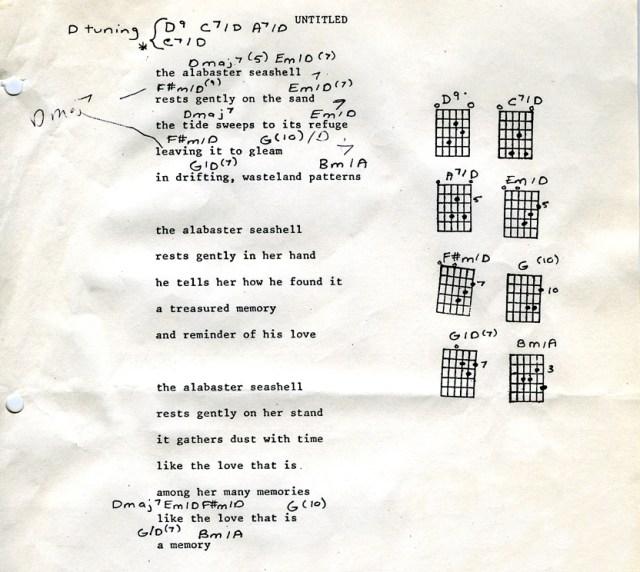 UNTITLED
D tuning { D9 C7/D A7/D
* C7/D
Dmaj7(5) Em/D(7)
the alabaster seashell
F#m/D(9) Em/D(7)
rests gently on the sand
Dmaj7
Dmaj7 Em/D7
the tide sweeps to its refuge
F#m/D G(10)/D
leaving it to gleam
G/D(7) Bm/A
in drifting, wasteland patterns
the alabaster seashell
rests gently in her hand
he tells her how he found it
a treasured memory
and reminder of his love
the alabaster seashell
rests gently on her stand
it gathers dust with time
like the love that is
among her many memories
Dmaj7 Em/D F#m/D G(10)
like the love that is
G/D(7) Bm/A
a memory
D9 C7/D
A7/D Em/D
5 5
F#m/D G (10)
7 10
G/D(7) Bm/A
7 3